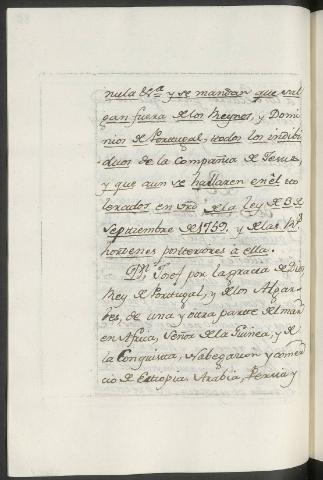 nula &ra y se mandan que sal
gan fuera de los Reynos, y Domi
nios de Portugal, todos los indibi
duos de la Compañia de Jesus
y que aun se hallaren en èl to
lerados en de la Ley de 3 de
Septiembre de 1759, y de las Rs
hordenes posteriores à ella.
Dn, Josef por la gracia de Dios,
Rey de Portugal, y de los Algar
bes, de una y otra parte del mar
en Africa, Señor de la Guinea, y de
la Conquista, Nabegacion y comer
cio de Ethiopia Arabia, Persia y